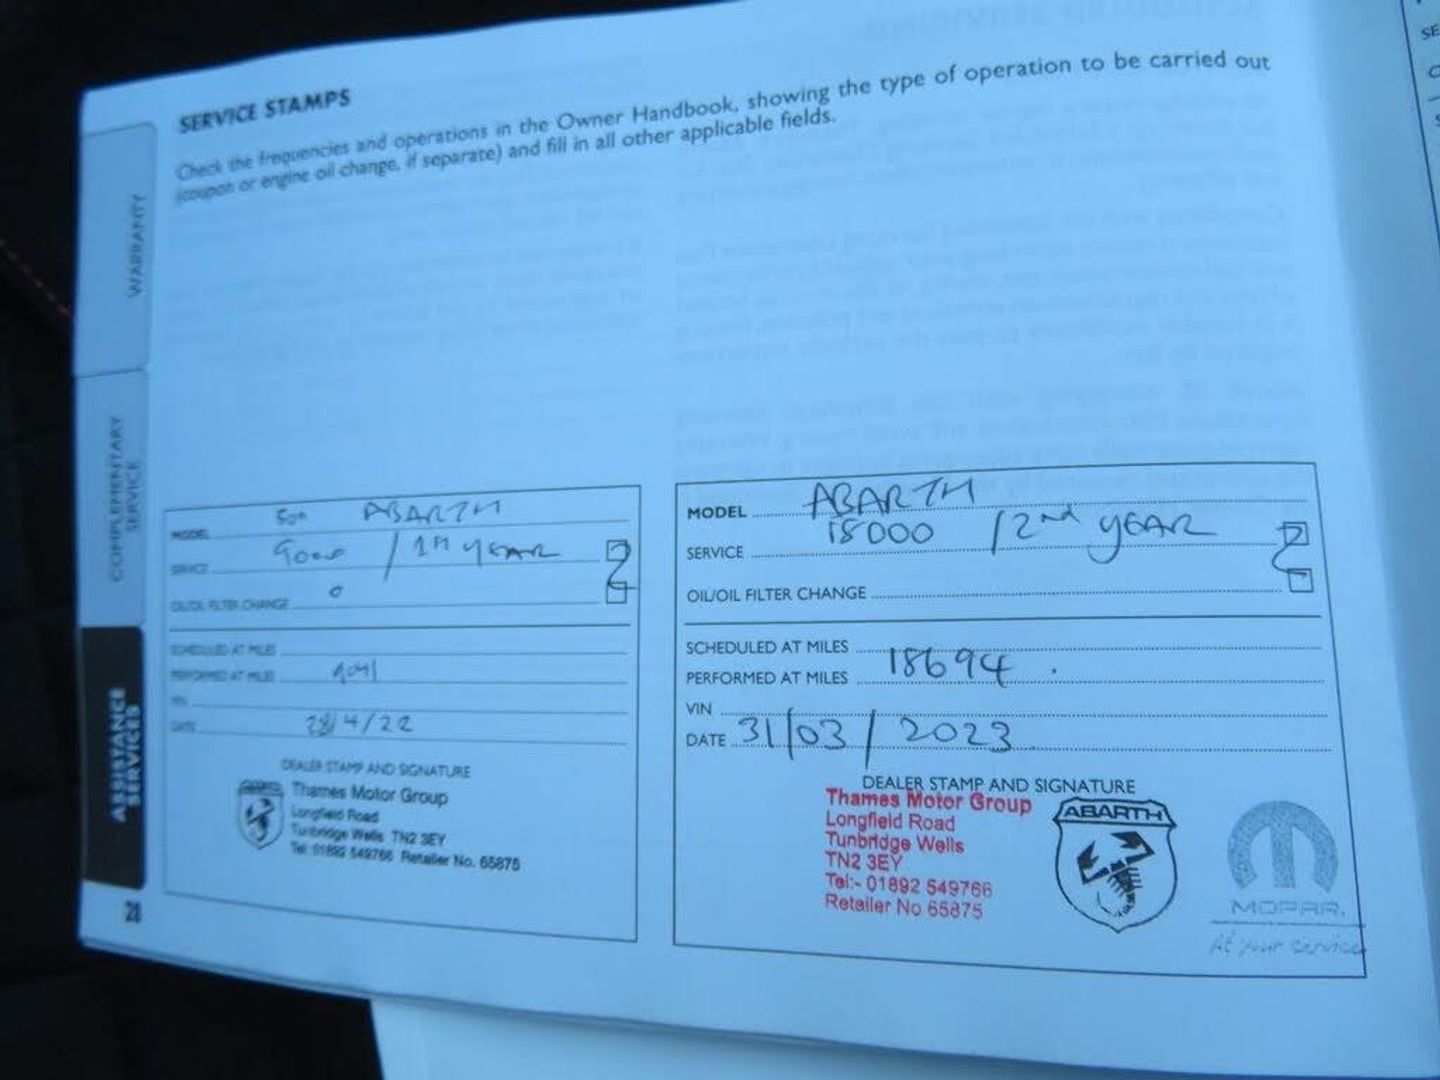 SERVICE STAMPS
Check the frequencies and operations in the Owner Handbook, showing the type of operation to be carried out
(coupon or engine oil change, if separate) and fill in all other applicable fields.
WARRANTY
COMPLEMENTARY
SERVICE
ASSISTANCE
SERVICES
28
MODEL ABARTH
SERVICE 9000 / 1st YEAR
OIL/OIL FILTER CHANGE
SCHEDULED AT MILES
PERFORMED AT MILES 9041
VIN
DATE 28/4/22
DEALER STAMP AND SIGNATURE
Thames Motor Group
Longfield Road
Tunbridge Wells TN2 3EY
Tel: 01892 549766 Retailer No. 65875
MODEL ABARTH
SERVICE 18000 / 2nd YEAR
OIL/OIL FILTER CHANGE
SCHEDULED AT MILES
PERFORMED AT MILES 18694
VIN
DATE 31/03/2023
DEALER STAMP AND SIGNATURE
Thames Motor Group
Longfield Road
Tunbridge Wells
TN2 3EY
Tel:- 01892 549766
Retailer No 65875
ABARTH
MOPAR.
At your service
SE